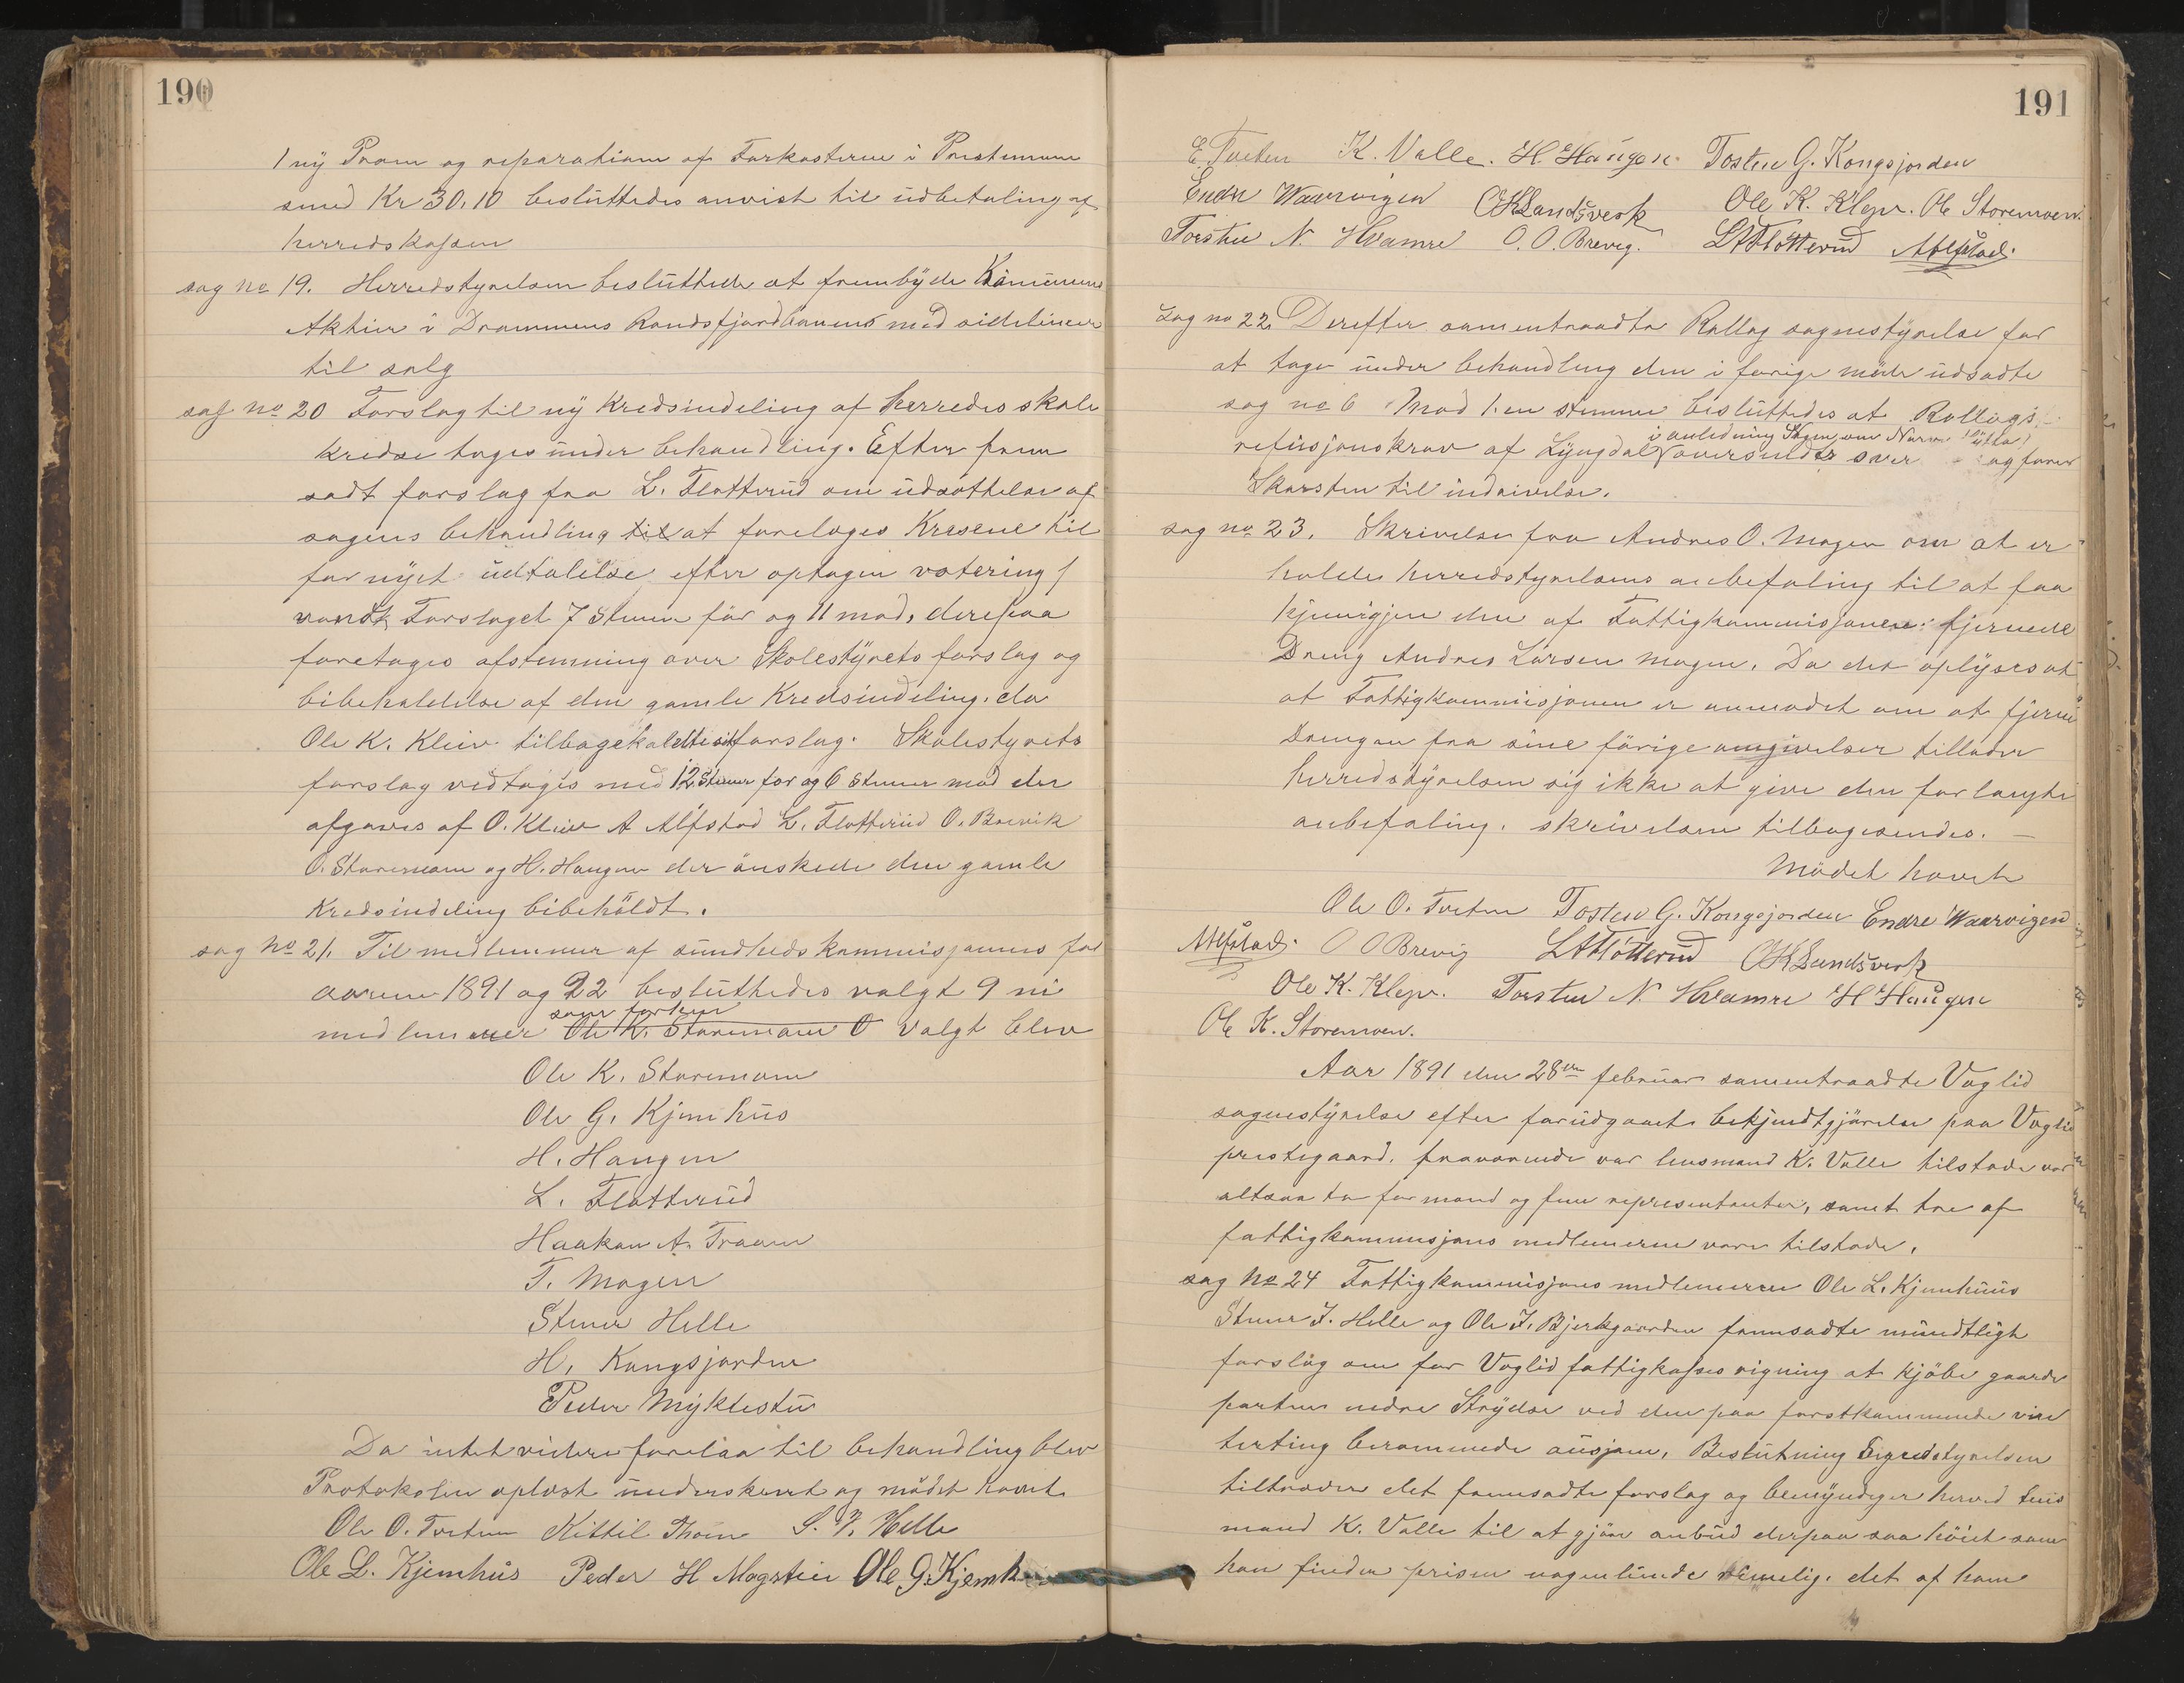 190
1 ny Pram og reparation af Farkosterne i Prestmoen
med Kr 30,10 besluttedes anvist til udbetaling af
herredskassen
sag no 19. Herredstyrelsen besluttede at frembyde Komunens
Aktier i Drammens Randsfjordbanens med sidelinier
til salg
sag no 20 Forslag til ny Kredsindeling af herredes skole
kredse toges under behandling. Efter frem
sadt forslag fra L. Flatterud om udsættelse af
sagens behandling til at forelæges Kresene til
fornyet udtalelse efter optagen votering
vandt Forslaget 7 Stemer får og 11 mod, derepaa
foretoges afstemning over Skolestyrets forslag og
bibeholdelse af den gamle Kredsindeling. da
Ole K. Kleiv tilbagekaldte sit forslag. Skolestyrets
forslag vedtoges med 12 Stemer for og 6 Stemer mod der
afgaves af O. Kleiv A Alfstad L. Flatterud O. Brevik
O. Storemoen og H. Haugen der ønskede den gamle
Kredsindeling bibeholdt.
sag No 21. Til medlemmer af sundheds kommisjonens for
aarene 1891 og 92 besluttedes valgt 9 ni
som forhen
medlemmer Ole K. Storemoen O valgt blev
Ole K. Storemoen
Ole G. Kjemhus
H. Haugen
L. Flatterud
Haakon A. Traaen
T. Mogen
Stener Helle
H. Kongsjorden
Peder Myklestu
Da intet videre forelaa til behandling blev
Protokolen oplæst underskrevet og mødet hævet.
Ole O. Tveten Kittil Thoen S. J. Helle
Ole L. Kjemhus Peder H Mogstu Ole G. Kjemh
191
E. Tveten K. Valle. H. Haugen. Tosten G. Kongsjorden
Endre Waarvigen OHLandsverk Ole K. Klepr. Ole Storemoen.
Torsten N. Hvamre O. O. Brevig. LAFlotterud Alfstad.
Sag no 22. Derefter samentraadte Rollag sognestyrelse for
at tage under behandling den i forige møde udsadte
sag no 6 Mod 1. en stemme besluttedes at Rollags
i anledning
refusjonskrav af Lyngdal oversendes over sagfører
Skarsten til inddrivelse.
sag no 23. Skrivelse fra Andres O. Mogen om at er
holde herredstyrelsens anbefaling til at faa
hjemigjen den af Fattigkommisjonen fjernede
Dreng Andres Larsen Mogen. Da det oplyses at
at Fattigkommisjonen er anmodet om at fjerne
Drengen fra sine førige omgivelser tillader
herredstyrelsen sig ikke at give den forlangte
anbefaling. skrivelsen tilbagesendes. —
Mødet hævet
Ole O. Tveten Tosten G. Kongsjorden Endre Waarvigen
Alfstad. O O Brevig LAFlotterud OHLandsverk
Ole K. Klepr. Torsten N. Hvamre H Haugen
Ole K. Storemoen.
Aar 1891 den 28de februar samentraadte Væglid
sognestyrelse efter forudgaaet bekjendtgjørelse paa Væglid
prestegaard. fraværende var lensmand K. Valle tilstede var
altsaa to formænd og fem representanter, samt tre af
fattigkommisjons medlemerne vare tilstede.
sag No 24 Fattigkommisjons medlemerne Ole L. Kjemhuus
Stener J. Helle og Ole J. Bjerkgaarden fremsadte mundtligt
forslag om for Væglid fattigkasses rigning at kjøbe gaarde
parten nedre Strydse ved den paa førstkommende vin
terting berammede ausjon. Beslutning Sognestyrelsen
tiltræder det fremsadte forslag og bemyndiger herved lens
mand K. Valle til at gjøre anbud derpaa saa høiet som
han finder prisen nogenlunde rimelig. det af ham